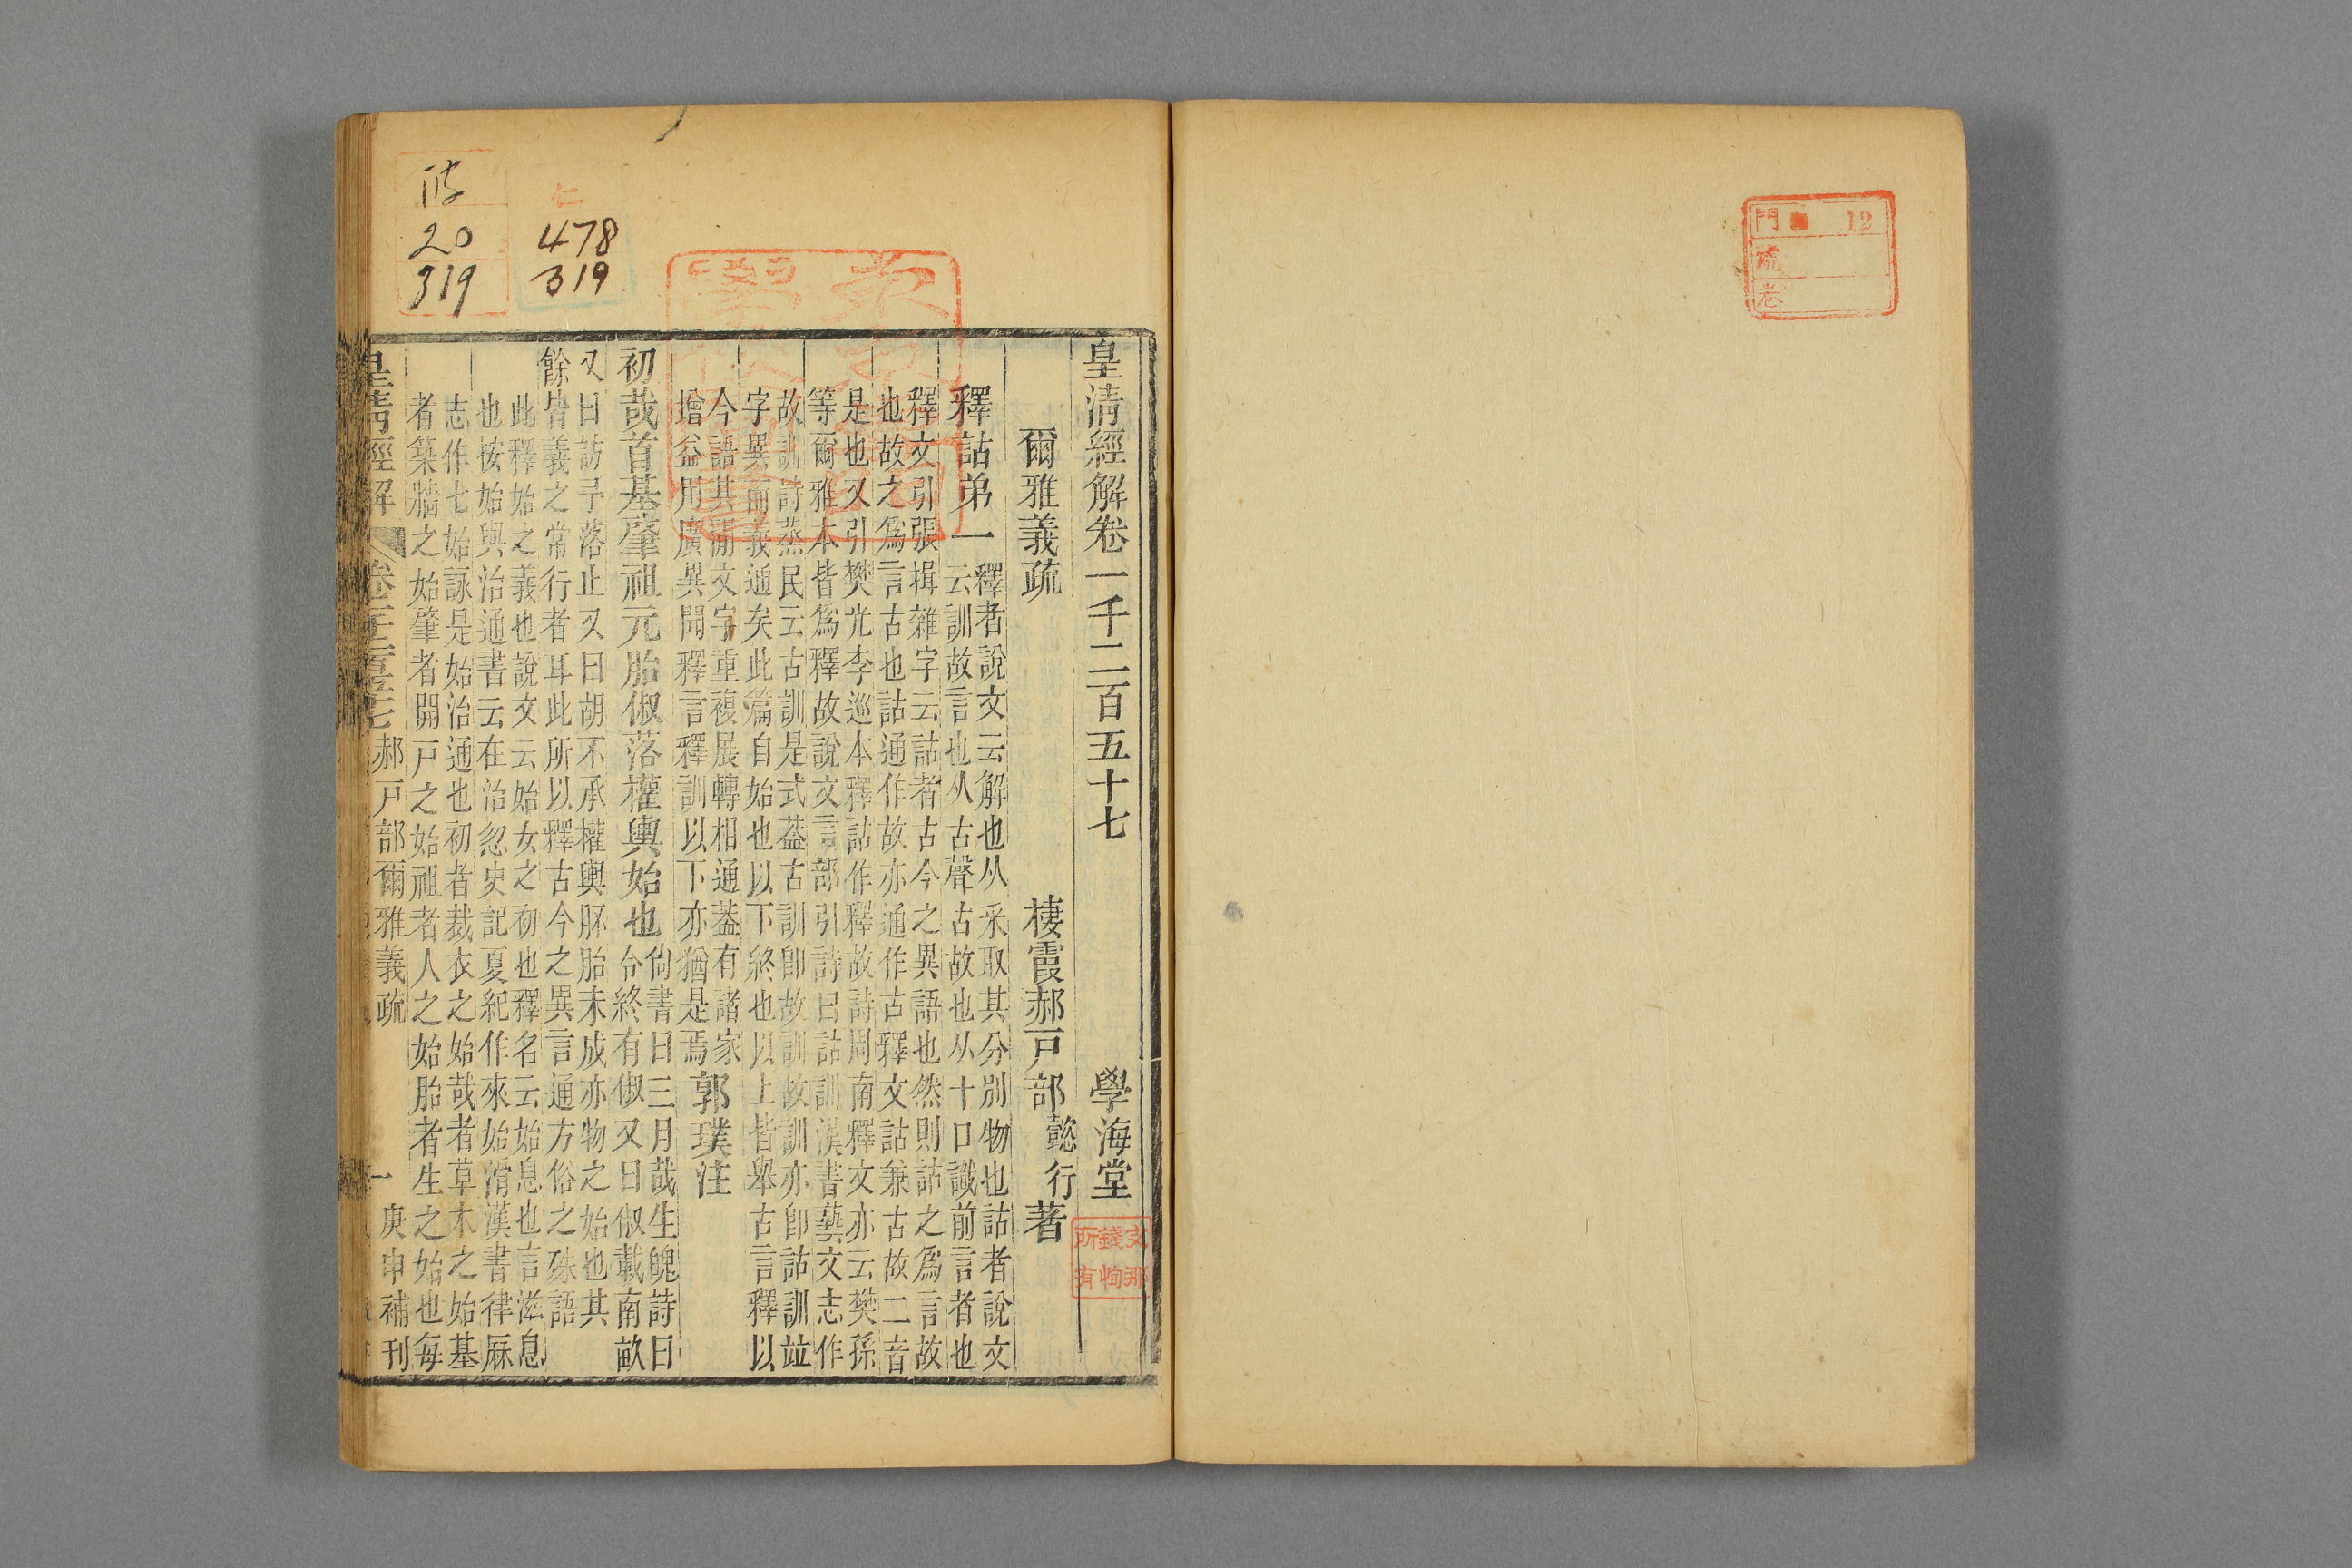 門 12
號
卷
皇清經解卷一千二百五十七 學海堂
爾雅義疏 棲霞郝戸部懿行著
釋詁弟一
釋者說文云解也从釆取其分別物也詁者說文
云訓故言也从古聲古故也从十口識前言者也
釋文引張揖雜字云詁者古今之異語也然則詁之爲言故
也故之爲言古也詁通作故亦通作古釋文詁兼古故二音
是也又引樊光李巡本釋詁作釋故詩周南釋文亦云樊孫
等爾雅本皆爲釋故說文言部引詩曰詁訓漢書藝文志作
故訓詩蒸民云古訓是式葢古訓卽故訓故訓亦卽詁訓竝
字異而義通矣此篇自始也以下終也以上皆舉古言釋以
今語其閒文字重複展轉相通葢有諸家
增益用廣異聞釋言釋訓以下亦猶是焉
郭璞注
初哉首基肇祖元胎俶落權輿始也
尙書曰三月哉生魄詩曰
令終有俶又曰俶載南畝
又曰訪予落止又曰胡不承權輿胚胎未成亦物之始也其
餘皆義之常行者耳此所以釋古今之異言通方俗之殊語
此釋始之義也說文云始女之初也釋名云始息也言滋息
也按始與治通書云在治忽史記夏紀作來始滑漢書律厤
志作七始詠是始治通也初者裁衣之始哉者草木之始基
者築牆之始肇者開戸之始祖者人之始胎者生之始也每
皇清經解 卷一千二百五十七 郝戸部爾雅義疏 一 庚申補刊
仁
478
319
20
319
文錢所
那恂有